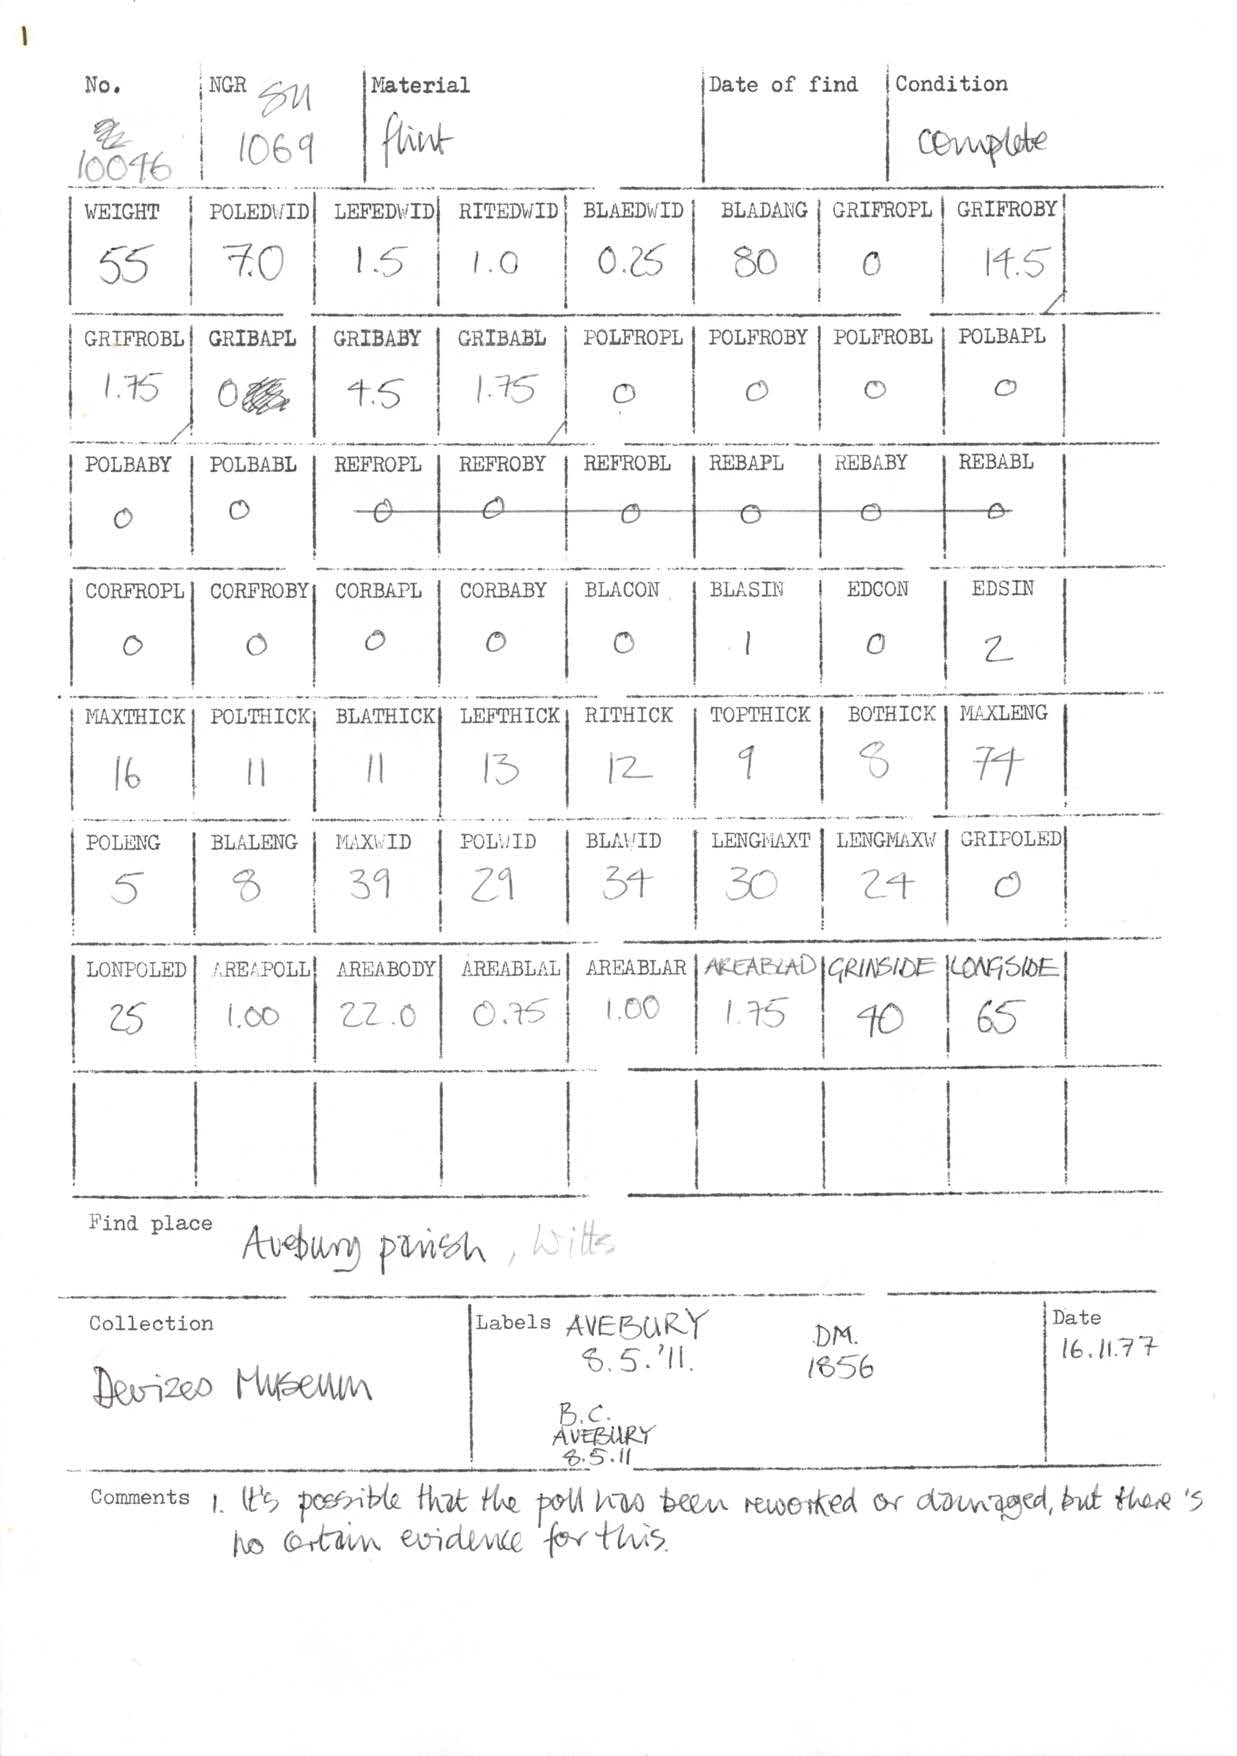 1
No. NGR SU Material Date of find Condition
10046 1069 flint complete
WEIGHT POLEDWID LEFEDWID RITEDWID BLAEDWID BLADANG GRIFROPL GRIFROBY
55 7.0 1.5 1.0 0.25 80 0 14.5
GRIFROBL GRIBAPL GRIBABY GRIBABL POLFROPL POLFROBY POLFROBL POLBAPL
1.75 0 4.5 1.75 0 0 0 0
POLBABY POLBABL REFROPL REFROBY REFROBL REBAPL REBABY REBABL
0 0 0 0 0 0 0 0
CORFROPL CORFROBY CORBAPL CORBABY BLACON BLASIN EDCON EDSIN
0 0 0 0 0 1 0 2
MAXTHICK POLTHICK BLATHICK LEFTHICK RITHICK TOPTHICK BOTHICK MAXLENG
16 11 11 13 12 9 8 74
POLENG BLALENG MAXWID POLWID BLAWID LENGMAXT LENGMAXW GRIPOLED
5 8 39 29 34 30 24 0
LONPOLED AREAPOLL AREABODY AREABLAL AREABLAR AREABLAD GRINSIDE LONGSIDE
25 1.00 22.0 0.75 1.00 1.75 40 65
Find place Avebury parish, Wilts
Collection Labels AVEBURY DM. Date
8.5.'11. 1856 16.11.77
Devizes Museum
B.C.
AVEBURY
8.5.11
Comments 1. It's possible that the poll has been reworked or damaged, but there's
no certain evidence for this.